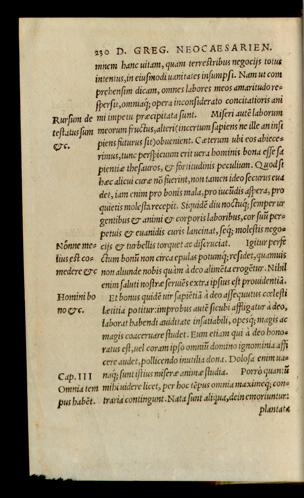 230 D. GREG. NEOCAESARIEN.
mnem hanc uitam, quàm terrestribus negocijs totus
intentus, in eiusmodi uanitates insumpsi. Nam ut com
prehensim dicam, omnes labores meos amaritudo re-
spersit, omniaq; opera inconsiderato concitationis ani
Rursum de mi impetu præcipitata sunt. Miseri autē laborum
testatus sum meorum fructus, alteri (incertum sapiens ne ille an insi
&c. piens futurus sit) obuenient. Cæterum ubi eos abiece-
rimus, tunc perspicuum erit uera hominis bona esse sa
pientiæ thesauros, & fortitudinis peculium. Quòd si
hæc alicui curæ nō fuerint, non tamen ideo securus eua
det, iam enim pro bonis mala, pro iucūdis aspera, pro
quietis molesta recepit. Siquidē diu noctuq; semper ur
gentibus & animi & corporis laboribus, cor suū per-
petuis & euanidis curis lancinat, seq; molestis nego-
Nōnne me- cijs & turbellis torquet ac discruciat. Igitur perfe
lius est co- ctum bonū non circa epulas potumq; residet, quamuis
medere &c non aliunde nobis quàm à deo alimēta erogētur. Nihil
enim saluti nostræ seruiēs extra ipsius est prouidentiā.
Homini bo Et bonus quidē uir sapiētiā à deo assequutus cœlesti
no &c. letitia potitur: improbus autē sicubi affligatur à deo,
laborat habendi auiditate insatiabili, opesq; magis ac
magis coaceruare studet. Eum etiam qui à deo hono-
ratus est, uel coram ipso omniū domino ignominia affi
cere audet, pollicendo inutilia dona. Dolosa enim ua-
Cap. III naq; sunt istius miseræ animæ studia. Porrò quantū
Omnia tem mihi uidere licet, per hoc tēpus omnia maximeq; con-
pus habēt. traria contingunt. Nata sunt aliqua, dein emoriuntur:
plantata